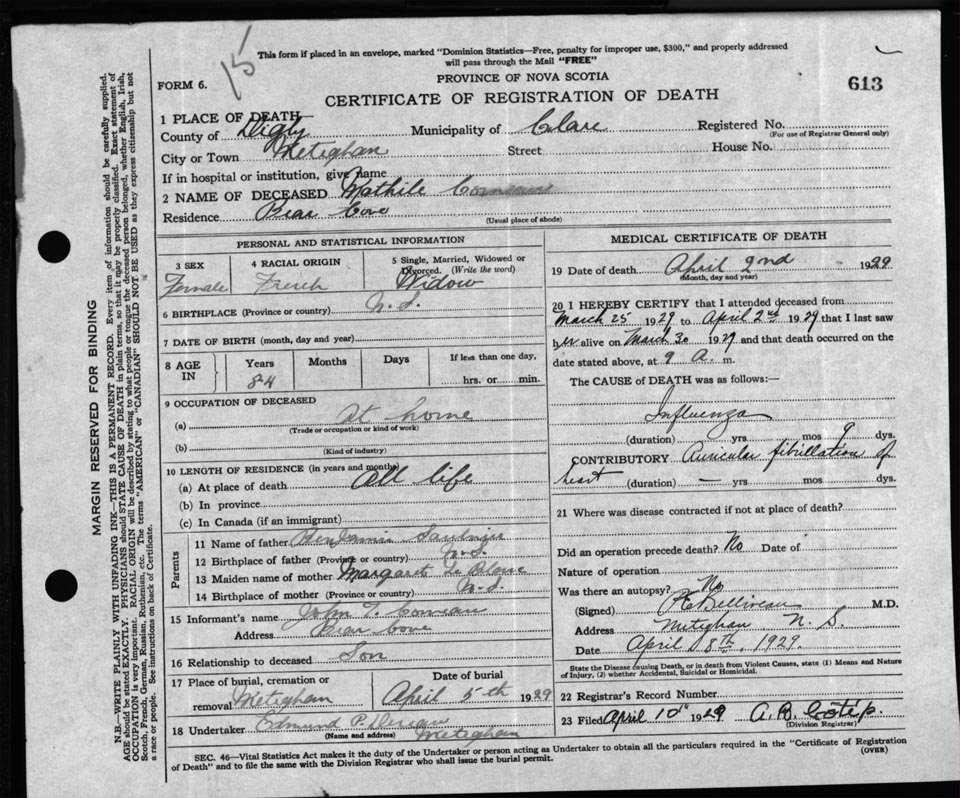 15
This form if placed in an envelope, marked "Dominion Statistics—Free, penalty for improper use, $300," and properly addressed
will pass through the Mail "FREE"
FORM 6.
PROVINCE OF NOVA SCOTIA
613
CERTIFICATE OF REGISTRATION OF DEATH
1 PLACE OF DEATH—
County of Digby Municipality of Clare Registered No.
(For use of Registrar General only)
City or Town Meteghan Street House No.
If in hospital or institution, give name
2 NAME OF DECEASED Mathile Comeau
Residence Bear Cove
(Usual place of abode)
PERSONAL AND STATISTICAL INFORMATION
3 SEX Female
4 RACIAL ORIGIN French
5 Single, Married, Widowed or
Divorced. (Write the word)
Widow
6 BIRTHPLACE (Province or country) N.S.
7 DATE OF BIRTH (month, day and year)
8 AGE IN Years 84 Months Days If less than one day,
hrs. or min.
9 OCCUPATION OF DECEASED
(a) At home
(Trade or occupation or kind of work)
(b)
(Kind of industry)
10 LENGTH OF RESIDENCE (in years and months)
(a) At place of death All life
(b) In province
(c) In Canada (if an immigrant)
Parents
11 Name of father Benjamin Saulnier
12 Birthplace of father (Province or country) N.S.
13 Maiden name of mother Margaret Le Blanc
14 Birthplace of mother (Province or country) N.S.
15 Informant's name John T. Comeau
Address Bear Cove
16 Relationship to deceased Son
17 Place of burial, cremation or
removal Meteghan
Date of burial
April 5th 1929
18 Undertaker Edmund P.
(Name and address) Meteghan
MEDICAL CERTIFICATE OF DEATH
19 Date of death April 2nd 1929
(Month, day and year)
20 I HEREBY CERTIFY that I attended deceased from
March 25 1929 to April 2nd 1929 that I last saw
her alive on March 30 1929 and that death occurred on the
date stated above, at 9 A. m.
The CAUSE of DEATH was as follows:—
Influenza
(duration) yrs mos 9 dys.
CONTRIBUTORY Auricular fibrillation of
heart (duration) — yrs. mos dys.
21 Where was disease contracted if not at place of death?
Did an operation precede death? No Date of
Nature of operation
Was there an autopsy? No
(Signed) Belliveau M.D.
Address Meteghan N. S.
Date April 8th, 1929.
State the Disease causing Death, or in death from Violent Causes, state (1) Means and Nature
of Injury, (2) whether Accidental, Suicidal or Homicidal.
22 Registrar's Record Number
23 Filed April 10th 1929 A. B.
(Division Registrar)
SEC. 46—Vital Statistics Act makes it the duty of the Undertaker or person acting as Undertaker to obtain all the particulars required in the "Certificate of Registration
of Death" and to file the same with the Division Registrar who shall issue the burial permit.
(OVER)
MARGIN RESERVED FOR BINDING
N.B.—WRITE PLAINLY WITH UNFADING INK—THIS IS A PERMANENT RECORD. Every item of information should be carefully supplied.
AGE should be stated EXACTLY. PHYSICIANS should STATE CAUSE OF DEATH in plain terms, so that it may be properly classified. Exact statement of
OCCUPATION is very important. RACIAL ORIGIN will be described by stating to what people or tongue the deceased person belonged, whether English, Irish,
Scotch, French, German, Russian, Ruthenian, etc. The terms "AMERICAN" or "CANADIAN" SHOULD NOT BE USED as they express citizenship but not
a race or people. See instructions on back of Certificate.